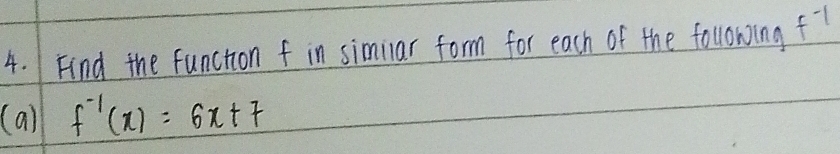 4. Find the function f in similar form for each of the following f⁻¹
(a) f⁻¹(x) = 6x + 7